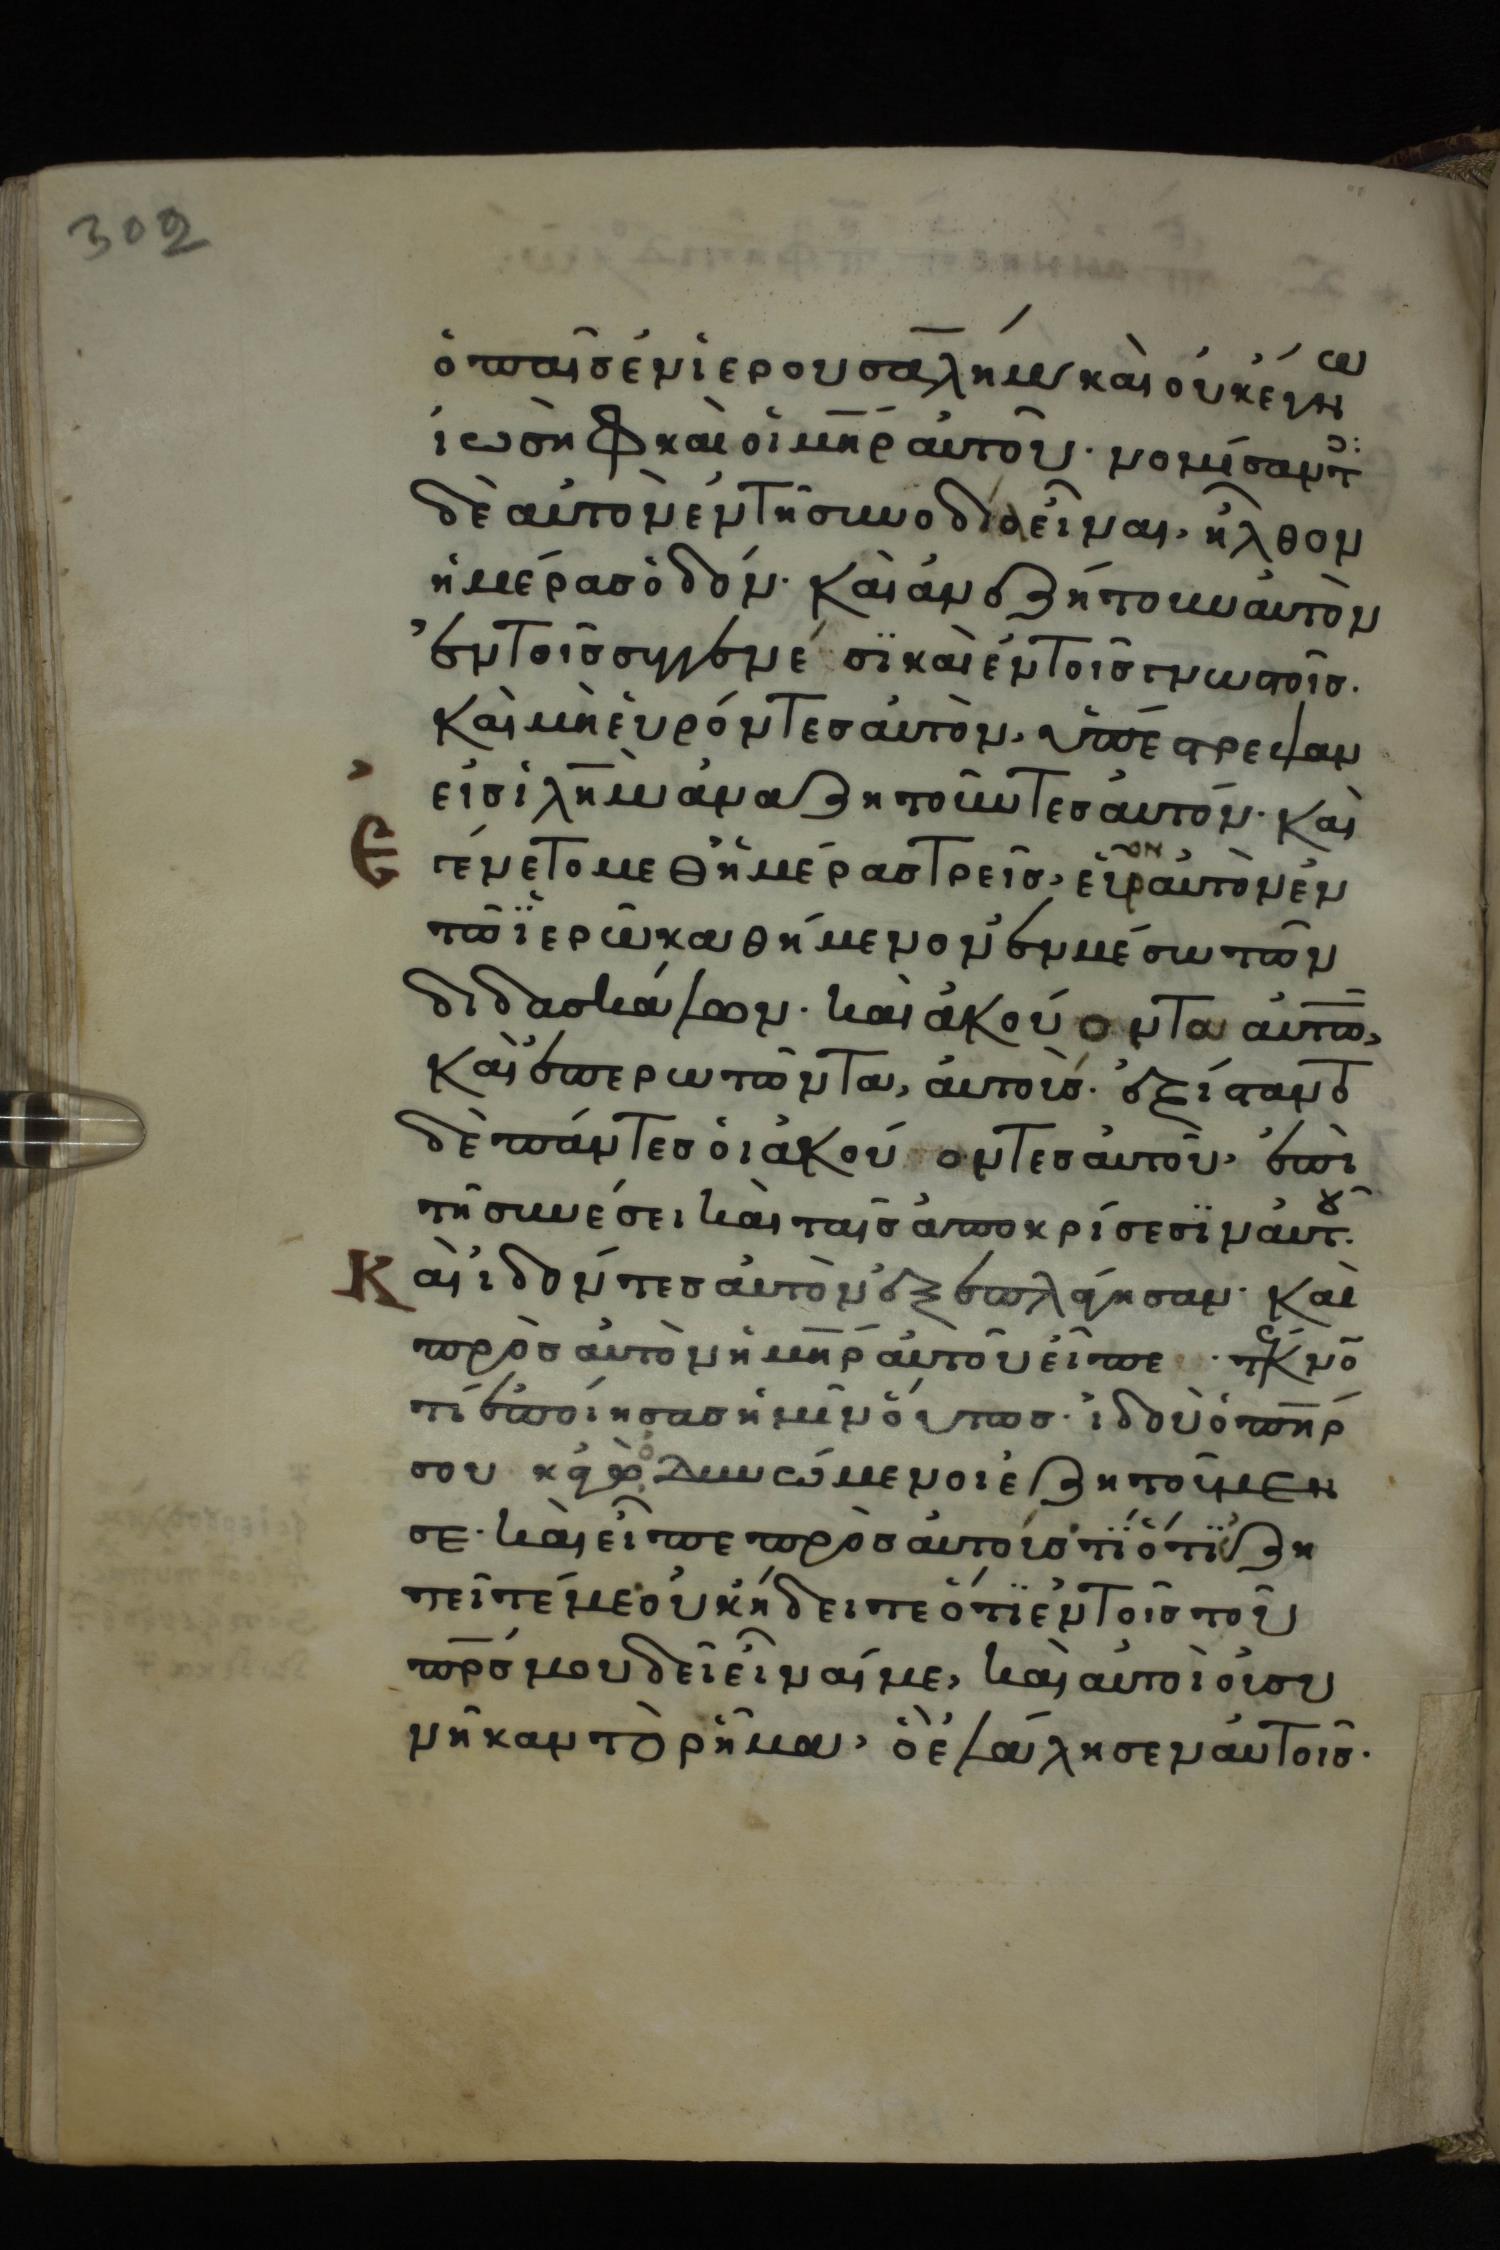 302
ὁ παῖς ἐν ἱερουσαλήμ καὶ οὐκ ἔγνω
ἰωσὴφ καὶ ἡ μηρ αὐτοῦ· νομίσαντ
δὲ αὐτὸν ἐν τῆ συνοδία εἶναι, ἦλθον
ἡμέρας ὁδόν· καὶ ἀνεζήτουν αὐτὸν
ἐν τοῖς συγγενέσϊ καὶ ἐν τοῖς γνωστοῖς·
καὶ μὴ εὑρόντες αὐτὸν, ὑπέστρεψαν
εἰς ἱλημ ἀναζητοῦντες αὐτόν· καὶ
ἐγένετο μεθ ἡμέρας τρεῖς, εὗρον αὐτὸν ἐν
τῶ ἱερῶ καθήμενον ἐν μέσω τῶν
διδασκάλων· καὶ ἀκούοντα αὐτῶ,
καὶ ἐπερωτῶντα, αὐτούς· ἐξίσταντ
δὲ πάντες οἱ ἀκούοντες αὐτοῦ, ἐπὶ
τῆ συνέσει καὶ ταῖς ἀποκρίσεσϊν αὐτοῦ·
Καὶ ἰδόντες αὐτὸν ἐξεπλάγησαν· καὶ
πρὸς αὐτὸν ἡ μηρ αὐτοῦ εἶπε· τεκνο
τί ἐποίησας ἡμῖν οὕτως· ἰδοὺ ὁ πηρ
σου κἀγὼ ὀδυνώμενοι ἐζητοῦμεν
σε· καὶ εἶπε πρὸς αὐτούς τΐ ὅτϊ ζη
τεῖτέ με οὐκ ἤδειτε ὅτϊ ἐν τοῖς τοῦ
πρσ μου δεῖ εἶναί με, καὶ αὐτοὶ οὐ συ
νῆκαν τὸ ῥῆμα, ὃ ἐλάλησεν αὐτοῖς·